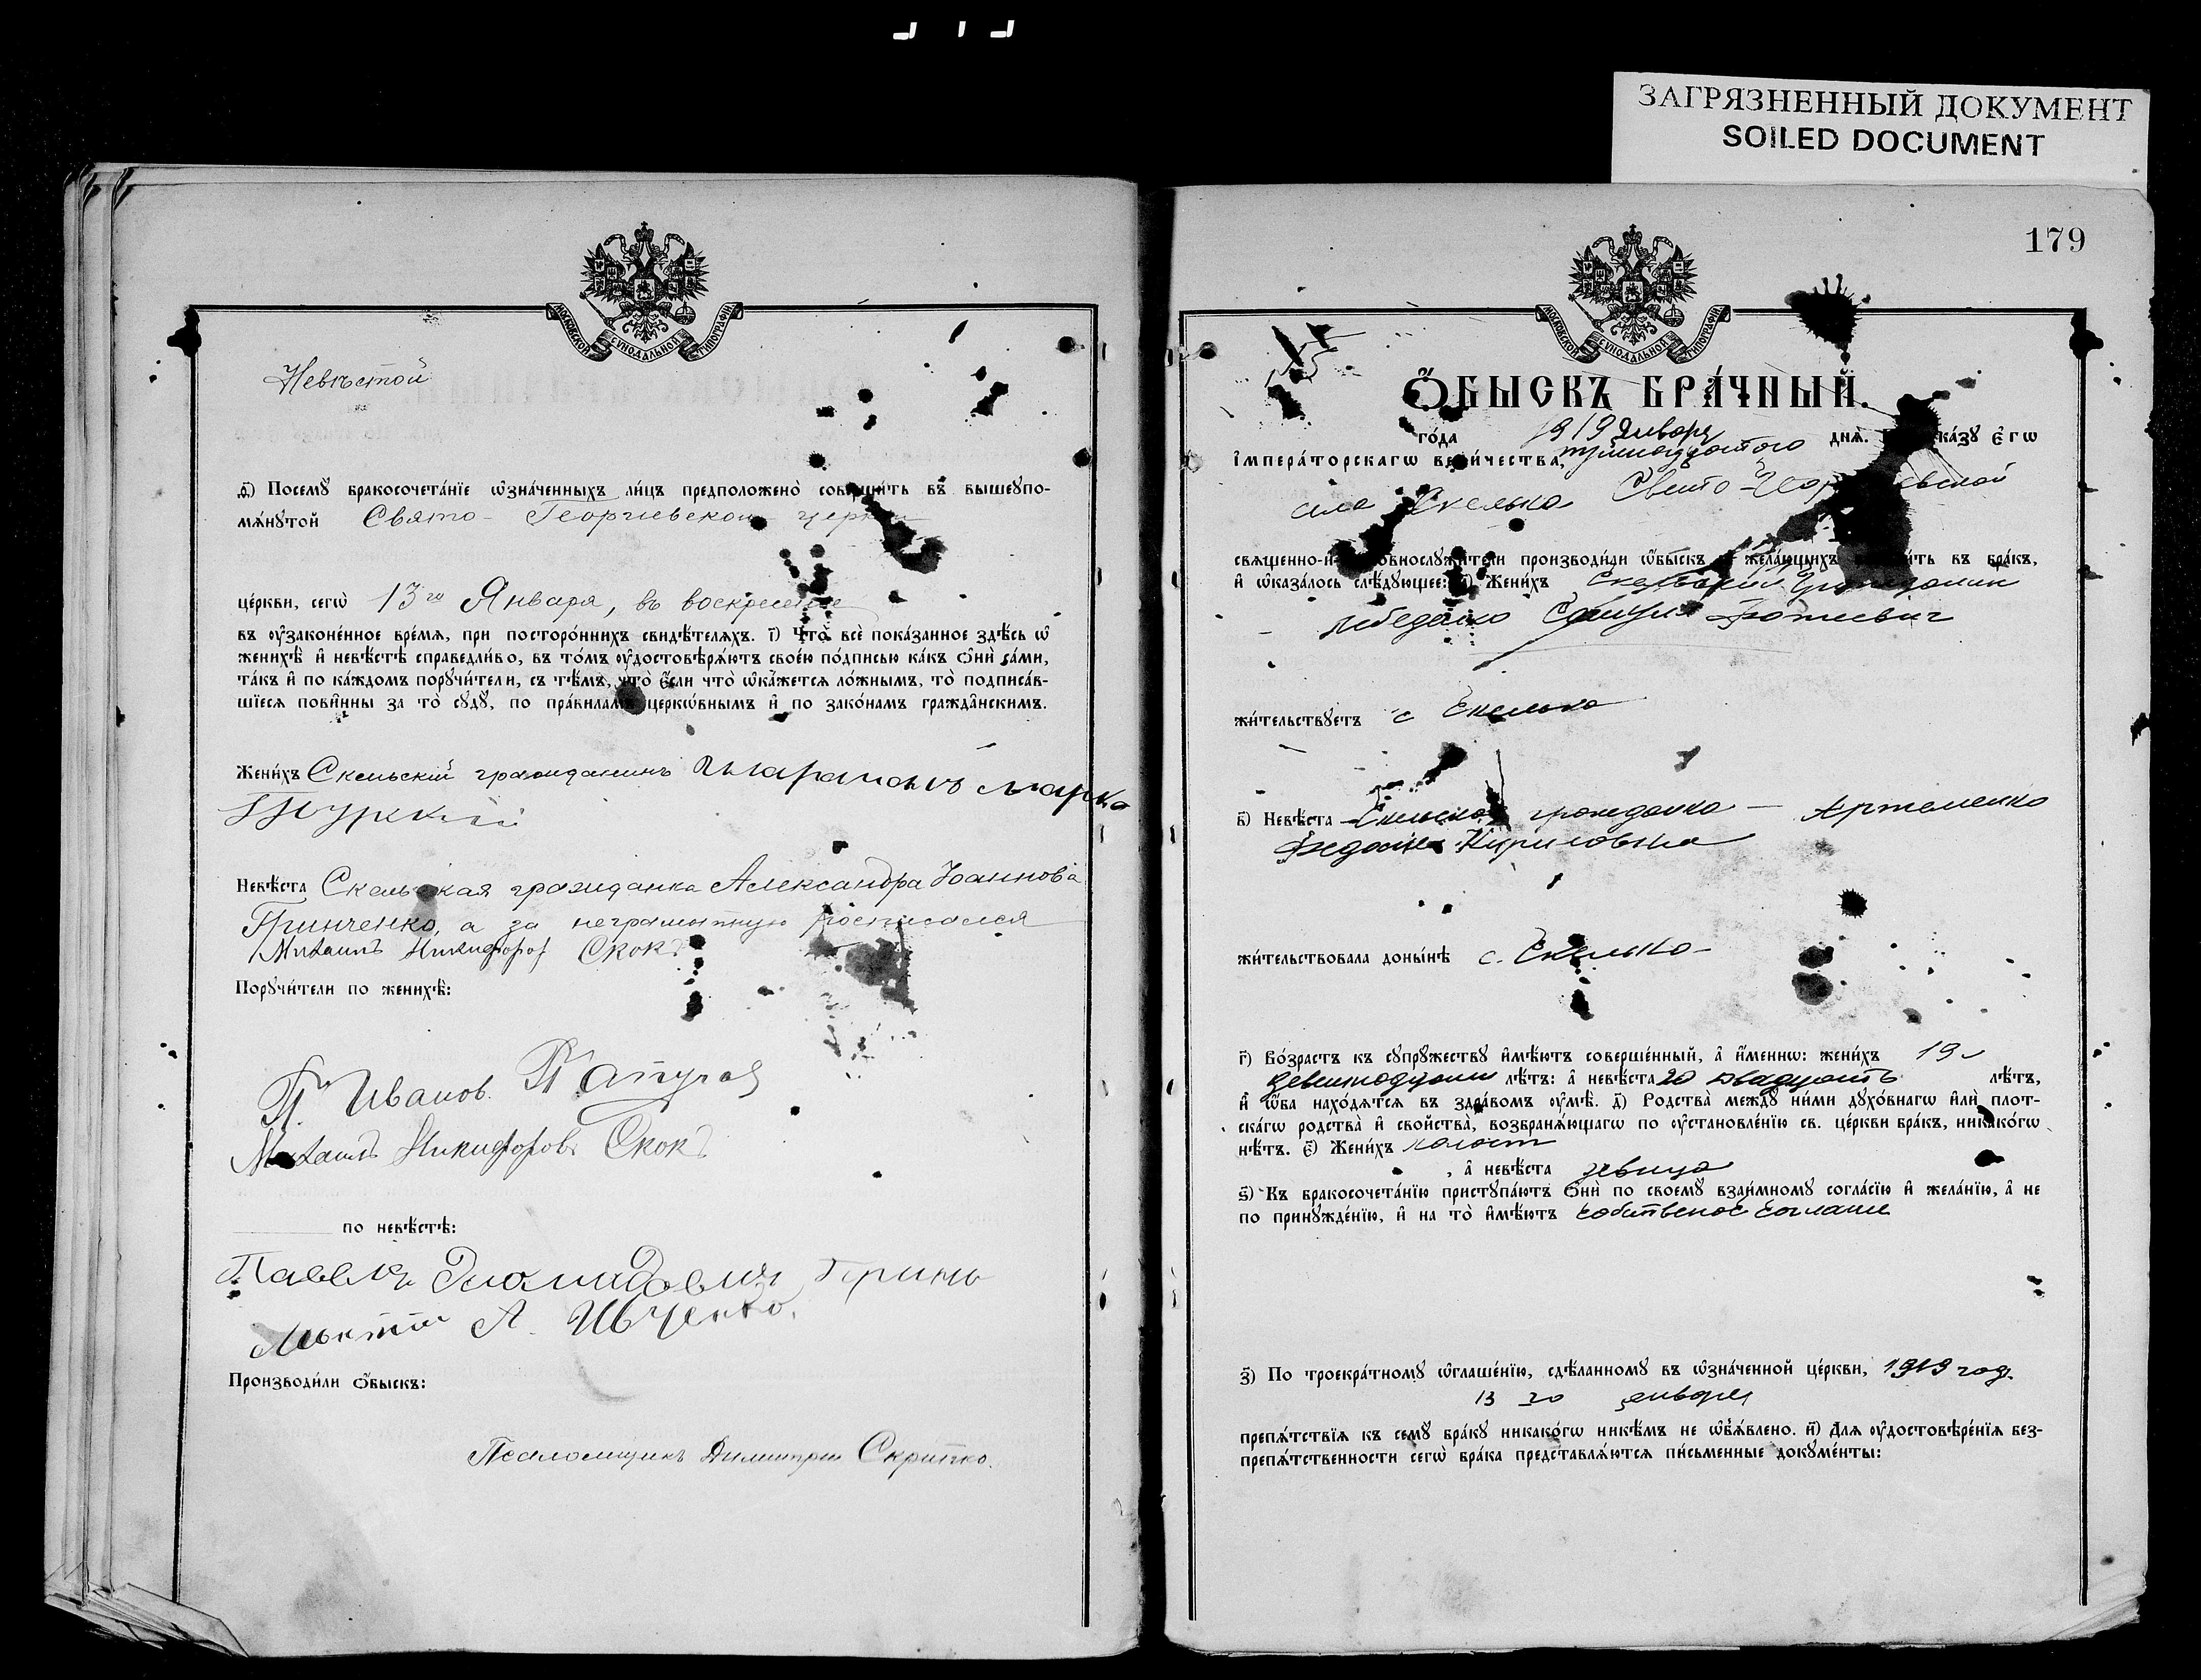 ЗАГРЯЗНЕННЫЙ ДОКУМЕНТ
SOILED DOCUMENT
МОСКОВСКОЙ СѴНОДАЛЬНОЙ ТИПОГРАФІИ
Невѣстой
д҃) Посемꙋ̀ бракосочета́нїе ѡ҆зна́ченныхъ ли́цъ предположено̀ соверши́ть въ вышеꙋпо-
мѧ́нꙋтой Свято-Георгіевской церкви
це́ркви, сегѡ̀ 13го Января, въ воскресенье
въ ᲂу҆зако́ненное вре́мѧ, при посторо́ннихъ свидѣ́телѧхъ. і҃) Что̀ всѐ пока́занное здѣ́сь ѡ҆
женихѣ̀ и҆ невѣ́стѣ справедли́во, въ то́мъ ᲂу҆достовѣрѧ́ютъ свое́ю по́дписью ка́къ ѻ҆нѝ са́ми,
та́къ и҆ по ка́ждомъ порꙋчи́тели, съ тѣ́мъ, что̀ є҆́сли что̀ ѡ҆ка́жетсѧ ло́жнымъ, то̀ подписа́в-
шїесѧ пови́нны за то̀ сꙋдꙋ̀, по пра́виламъ церкѡ́внымъ и҆ по зако́намъ гражда́нскимъ.
Жени́хъ Скельскій гражданинъ Марко
Невѣ́ста Скельская гражданка Александра Іоаннова
Гринченко, а за неграмотную росписался
Михаилъ Никифоров Скокъ
Порꙋчи́тели по женихѣ̀:
П. Иванов.
Михаилъ Никифоровъ Скокъ
по невѣ́стѣ:
Павелъ Гринь
А. Ивченко.
Производи́ли ѻ҆́быскъ:
Псаломщикъ Димитрій Скрипко.
179
МОСКОВСКОЙ СѴНОДАЛЬНОЙ ТИПОГРАФІИ
Ѻ҆́БЫСКЪ БРА́ЧНЫЙ.
го́да 1919 Января тринадцатого днѧ̀. ка́зꙋ є҆гѡ̀
і҆мпера́торскагѡ вели́чества,
села Скелька Свято-Георгіевской
свѧще́нно-и҆- служи́тели производи́ли ѡ҆́быскъ жела́ющихъ въ бра́къ,
и҆ ѡ҆каза́лось слѣ́дꙋющее: Жени́хъ Скельский Гражданин
жи́тельствꙋетъ с Скелька
в҃) Невѣ́ста Скельская гражданка — Артеменко
Федосия Кириловна
жи́тельствовала доны́нѣ с. Скелька
г҃) Во́зрастъ къ сꙋпрꙋ́жествꙋ и҆мѣ́ютъ соверше́нный, а҆ и҆́меннѡ: жени́хъ 19
девятнадцати лѣ́тъ: а҆ невѣ́ста 20 двадцать лѣ́тъ,
и҆ ѡ҆́ба нахо́дѧтсѧ въ здра́вомъ ᲂу҆мѣ̀. д҃) Родства̀ междꙋ̀ ни́ми дꙋхо́внагѡ и҆лѝ пло́т-
скагѡ родства̀ и҆ сво́йства, возбранѧ́ющагѡ по ᲂу҆становле́нїю св. це́ркви бра́къ, никако́гѡ
нѣ́тъ. є҃) Жени́хъ холост
, а҆ невѣ́ста девица
ѕ҃) Къ бракосочета́нїю пристꙋпа́ютъ ѻ҆нѝ по своемꙋ̀ взаи́мномꙋ согла́сїю и҆ жела́нїю, а҆ не
по принꙋжде́нїю, и҆ на то̀ и҆мѣ́ютъ собственое согласие
з҃) По троекра́тномꙋ ѡ҆глаше́нїю, сдѣ́ланномꙋ въ ѡ҆зна́ченной це́ркви, 1919 год.
13 20 января
препѧ́тствїѧ къ семꙋ̀ бра́кꙋ никако́гѡ никѣ́мъ не ѡ҆б̾ѧ́влено. и҃) Для ᲂу҆достовѣре́нїѧ без-
препѧ́тственности сегѡ̀ бра́ка представлѧ́ютсѧ пи́сьменные докꙋме́нты: